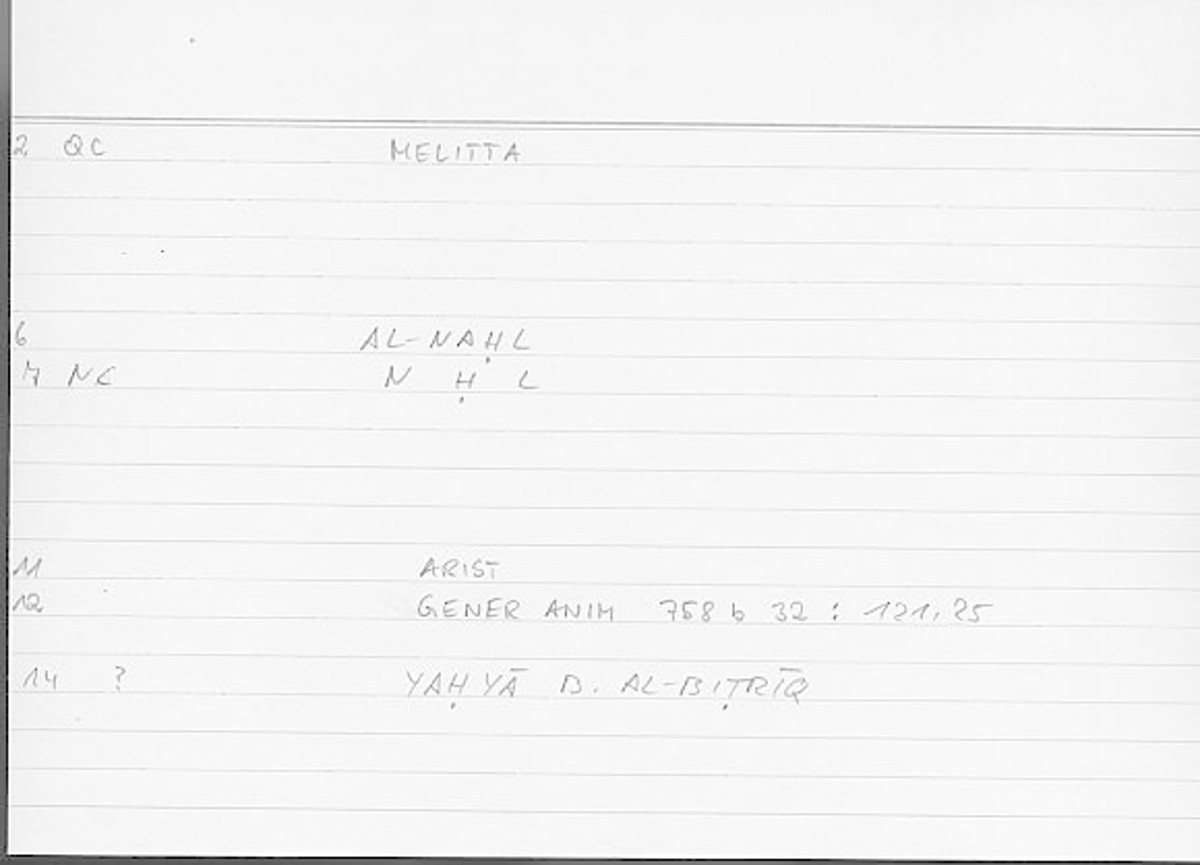 2 QC MELITTA
6 AL-NAḤL
7 NC N Ḥ L
11 ARIST
12 GENER ANIM 758 b 32 : 121,25
14 ? YAḤYĀ B. AL-BIṬRĪQ